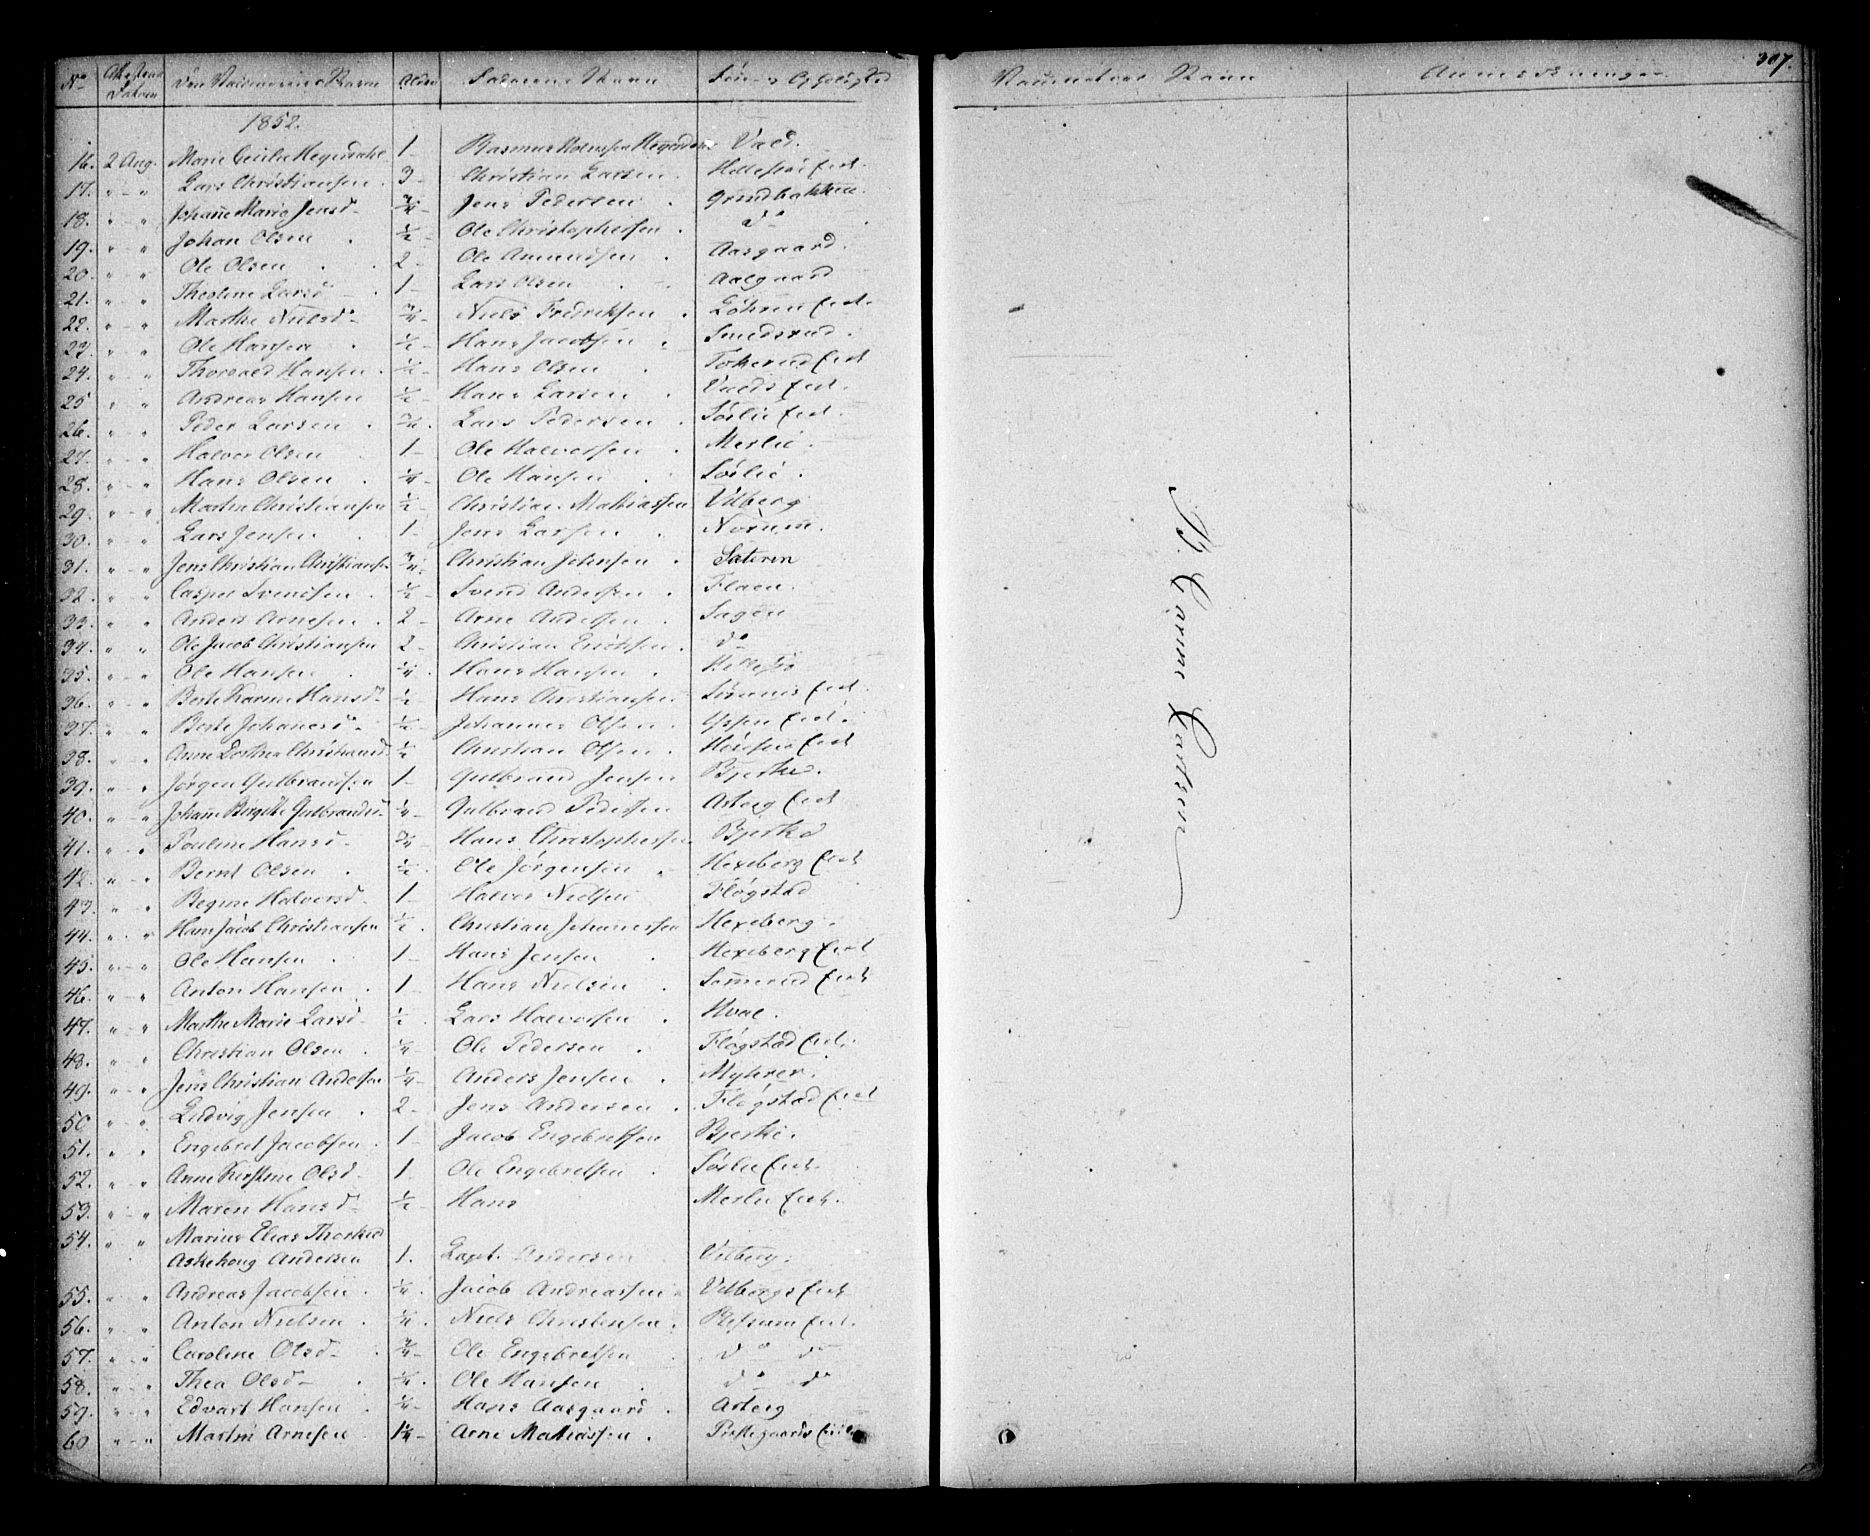 No Attestens Datum Den Vaccineredes Navn Alder Faderens Navn Opholdssted
Vaccinateurs Navn Anmærkninger
307.
1852.
16. 2 Aug. Marie Cecilie Hegerdahl 1 - Rasmus Hegerdahl Vald.
17. " " Lars Christiansen 3 - Christian Larsen Hellesjø Eiet
18. " " Johanne Marie Jensd. 3/4 - Jens Pedersen Grindbakken
19. " " Johan Olsen 1/2 - Ole Christophersen do
20. " " Ole Olsen 2 - Ole Amundsen Aasgaard
21. " " Thestine Larsd 1 - Lars Olsen Aalgaard
22. " " Marthe Nielsd - 3/4 - Niels Fredriksen Løhren Eiet
23. " " Ole Hansen 1/2 - Hans Jacobsen Smedsrud
24. " " Thorvald Hansen 1/2 - Hans Olsen Tokerud Eiet
25 " " Andreas Hansen 1/2 Hans Larsen Valds Eiet
26. " " Peder Larsen 3/4 Lars Pedersen Sørlie Eiet
27. " " Halvor Olsen 1 - Ole Halvorsen Merlie
28. " " Hans Olsen 1/4 Ole Hansen Sørlie
29. " " Martin Christiansen 1/2 Christian Mathiassen Vilberg
30. " " Lars Jensen 1 - Jens Larsen Norum
31. " " Jens Christian Christians. 3/4 Christian Johnsen Sateren
32. " " Casper Svendsen 1/2 - Svend Andersen Flaen
33. " " Anders Arnesen 2 - Arne Andersen Sagen
34. " " Ole Jacob Christiansen 2 - Christian Ericksen do
35. " " Ole Hansen 1/4 Hans Hansen Hellesjø
36. " " Berte Karine Hansd 1/2 Hans Christiansen Eiet
37. " " Berte Johanesd - 1/2 - Johannes Olsen Eiet
38. " " Anne Dorthea Christiansd 1/2 Christian Olsen Eiet
39. " " Jørgen Gulbrandsen 1 - Gulbrand Jensen Bjerke
40. " " Johane Birgitte Gulbrandsd 1/4 Gulbrand Pedersen Asberg Eiet
41. " " Pouline Hansd - 3/4 - Hans Christophersen Bjerke
42. " " Bernt Olsen 1/2 Ole Jørgensen Hexeberg Eiet
43. " " Begine Halvorsd 1 - Halvor Nielsen Fløgstad
44. " " Hans Jacob Christiansen 1/2 Christian Johannessen Hexeberg
45. " " Ole Hansen 1 - Hans Jensen Hexeberg Eiet
46. " " Anton Hansen 1 - Hans Nielsen Sømerud Eiet
47. " " Marthe Marie Larsd - 1/2 Lars Halvorsen Hval
48. " " Christian Olsen 1/4 - Ole Pedersen Fløgstad Eiet
49. " " Jens Christian Andersen 1/4 - Anders Jensen Myhrer
50. " " Ludvig Jensen 2 - Jens Andersen Fløgstad Eiet
51. " " Engebret Jacobsen 1 - Jacob Engebretsen Bjerke
52. " " Anne Kirstine Olsd - 1 Ole Engebretsen Sørlie Eiet
53. " " Maren Hansd - 1/2 - Hans Merlie Eiet
54. " " Marius Elias Thorkild
Askehoug Andersen 1. Capt. Andersen Vilberg
55. " " Andreas Jacobsen 1/4 Jacob Andreassen Vilbergs Eiet
56. " " Anton Nielsen 1/4 Niels Christensen Refsum Eiet
57. " " Caroline Olsd - 3/4 - Ole Engebretsen do do
58. " " Thea Olsd - 1/4 Ole Hansen do do
59. " " Edvart Hansen 1/4 - Hans Aasgaard Asberg
60 " " Martin Arnesen 1 1/4 - Arne Mathiassen Præstegaards Eiet
B. Carine Carlsen